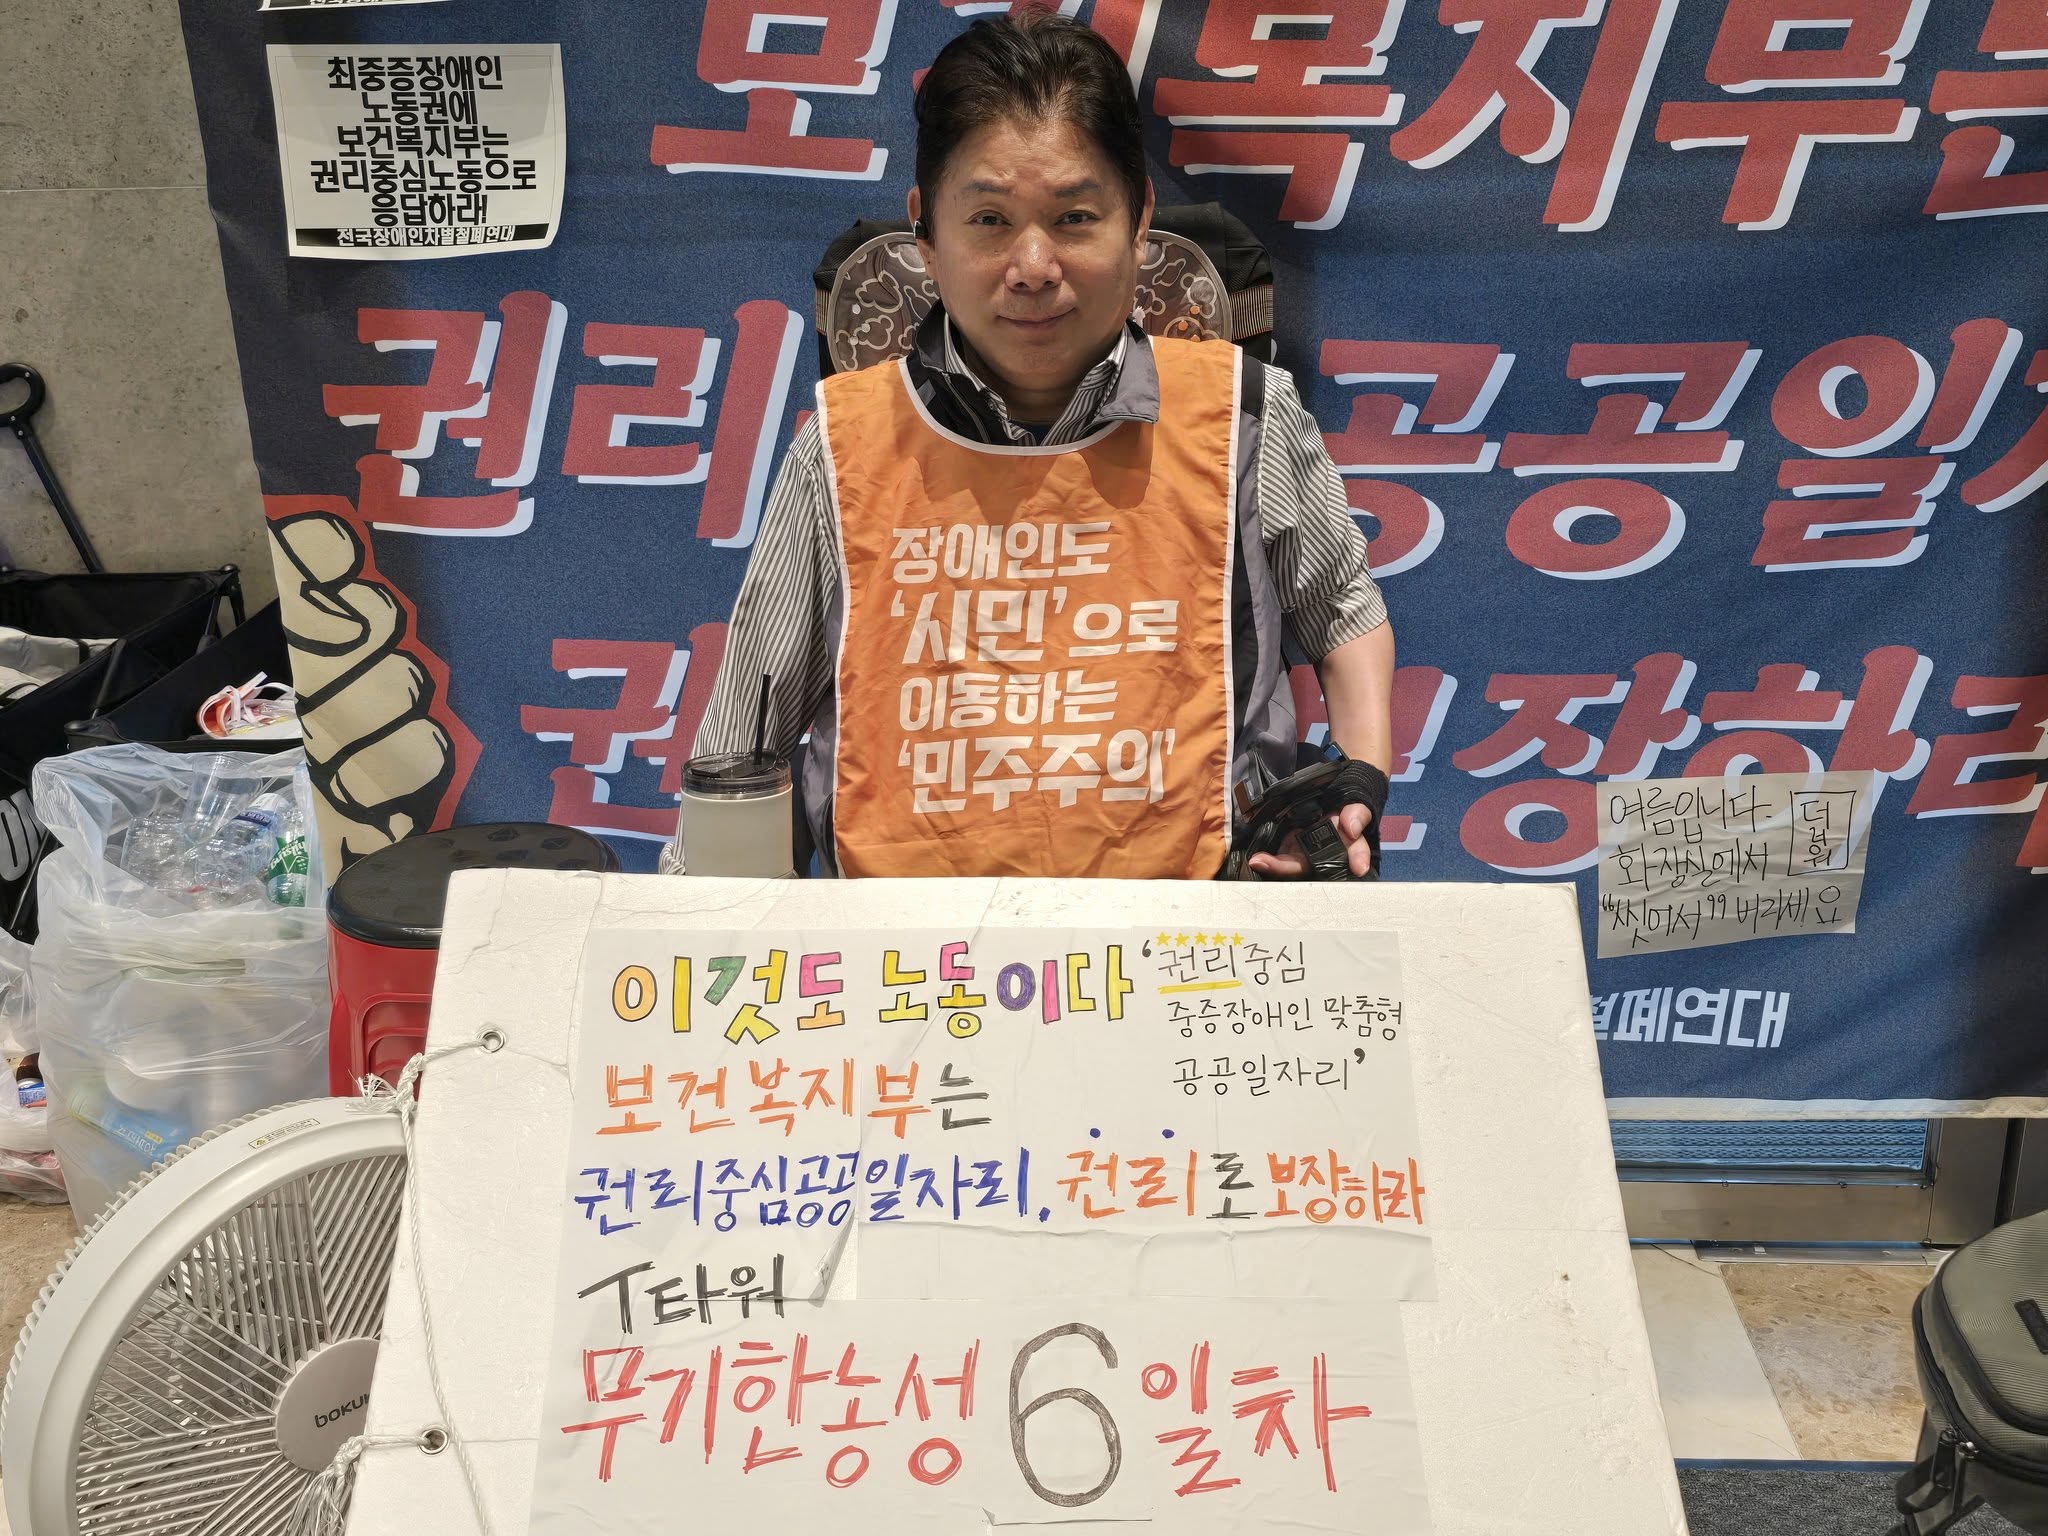 최중증장애인
노동권에
보건복지부는
권리중심노동으로
응답하라!
전국장애인차별철폐연대
복지부는
권리
공공일자
보장하라
철폐연대
장애인도
'시민'으로
이동하는
'민주주의'
여름입니다.
화장실에서
"씻어서" 버리세요
더
러
워
이것도 노동이다
'권리중심
중증장애인 맞춤형
공공일자리'
보건복지부는
권리중심공공일자리, 권리로 보장하라
T타워
무기한농성 6일차